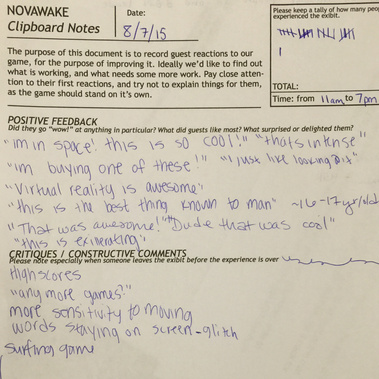 NOVAWAKE
Clipboard Notes
Date:
8/7/15
Please keep a tally of how many peop
experienced the exibit.
TOTAL:
Time: from 11am to 7pm
The purpose of this document is to record guest reactions to our
game, for the purpose of improving it. Ideally we'd like to find out
what is working, and what needs some more work. Pay close atten-
tion to their first reactions, and try not to explain things for them,
as the game should stand on it's own.
POSITIVE FEEDBACK
Did they go "wow!" at anything in particular? What did guests like most? What surprised or delighted them?
"im in space! this is so cool!" "thats intense"
"im buying one of these!" "I just like looking at it"
"Virtual reality is awesome"
"this is the best thing known to man" ~16-17 yr/old
"That was awesome!" "Dude that was cool"
"this is exilerating"
CRITIQUES / CONSTRUCTIVE COMMENTS
Please note especially when someone leaves the exibit before the experience is over
Highscores
"any more games?"
more sensitivity to moving
words staying on screen-glitch
surfing game